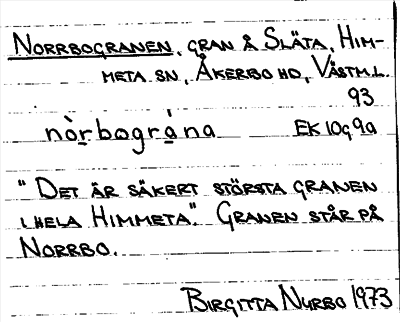 NORRBOGRANEN, GRAN Å SLÄTA, HIM-
META SN, ÅKERBO HD, VÄSTM.L.
93
nòrbográna EK 10g 9a
"DET ÄR SÄKERT STÖRSTA GRANEN
I HELA HIMMETA." GRANEN STÅR PÅ
NORRBO.
BIRGITTA NYRBO 1973